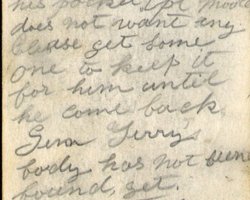 his pocket, Cpt Mood
does not want any
please get some
one to keep it
for him until
he come back
Terry
body has not been
found, yet.